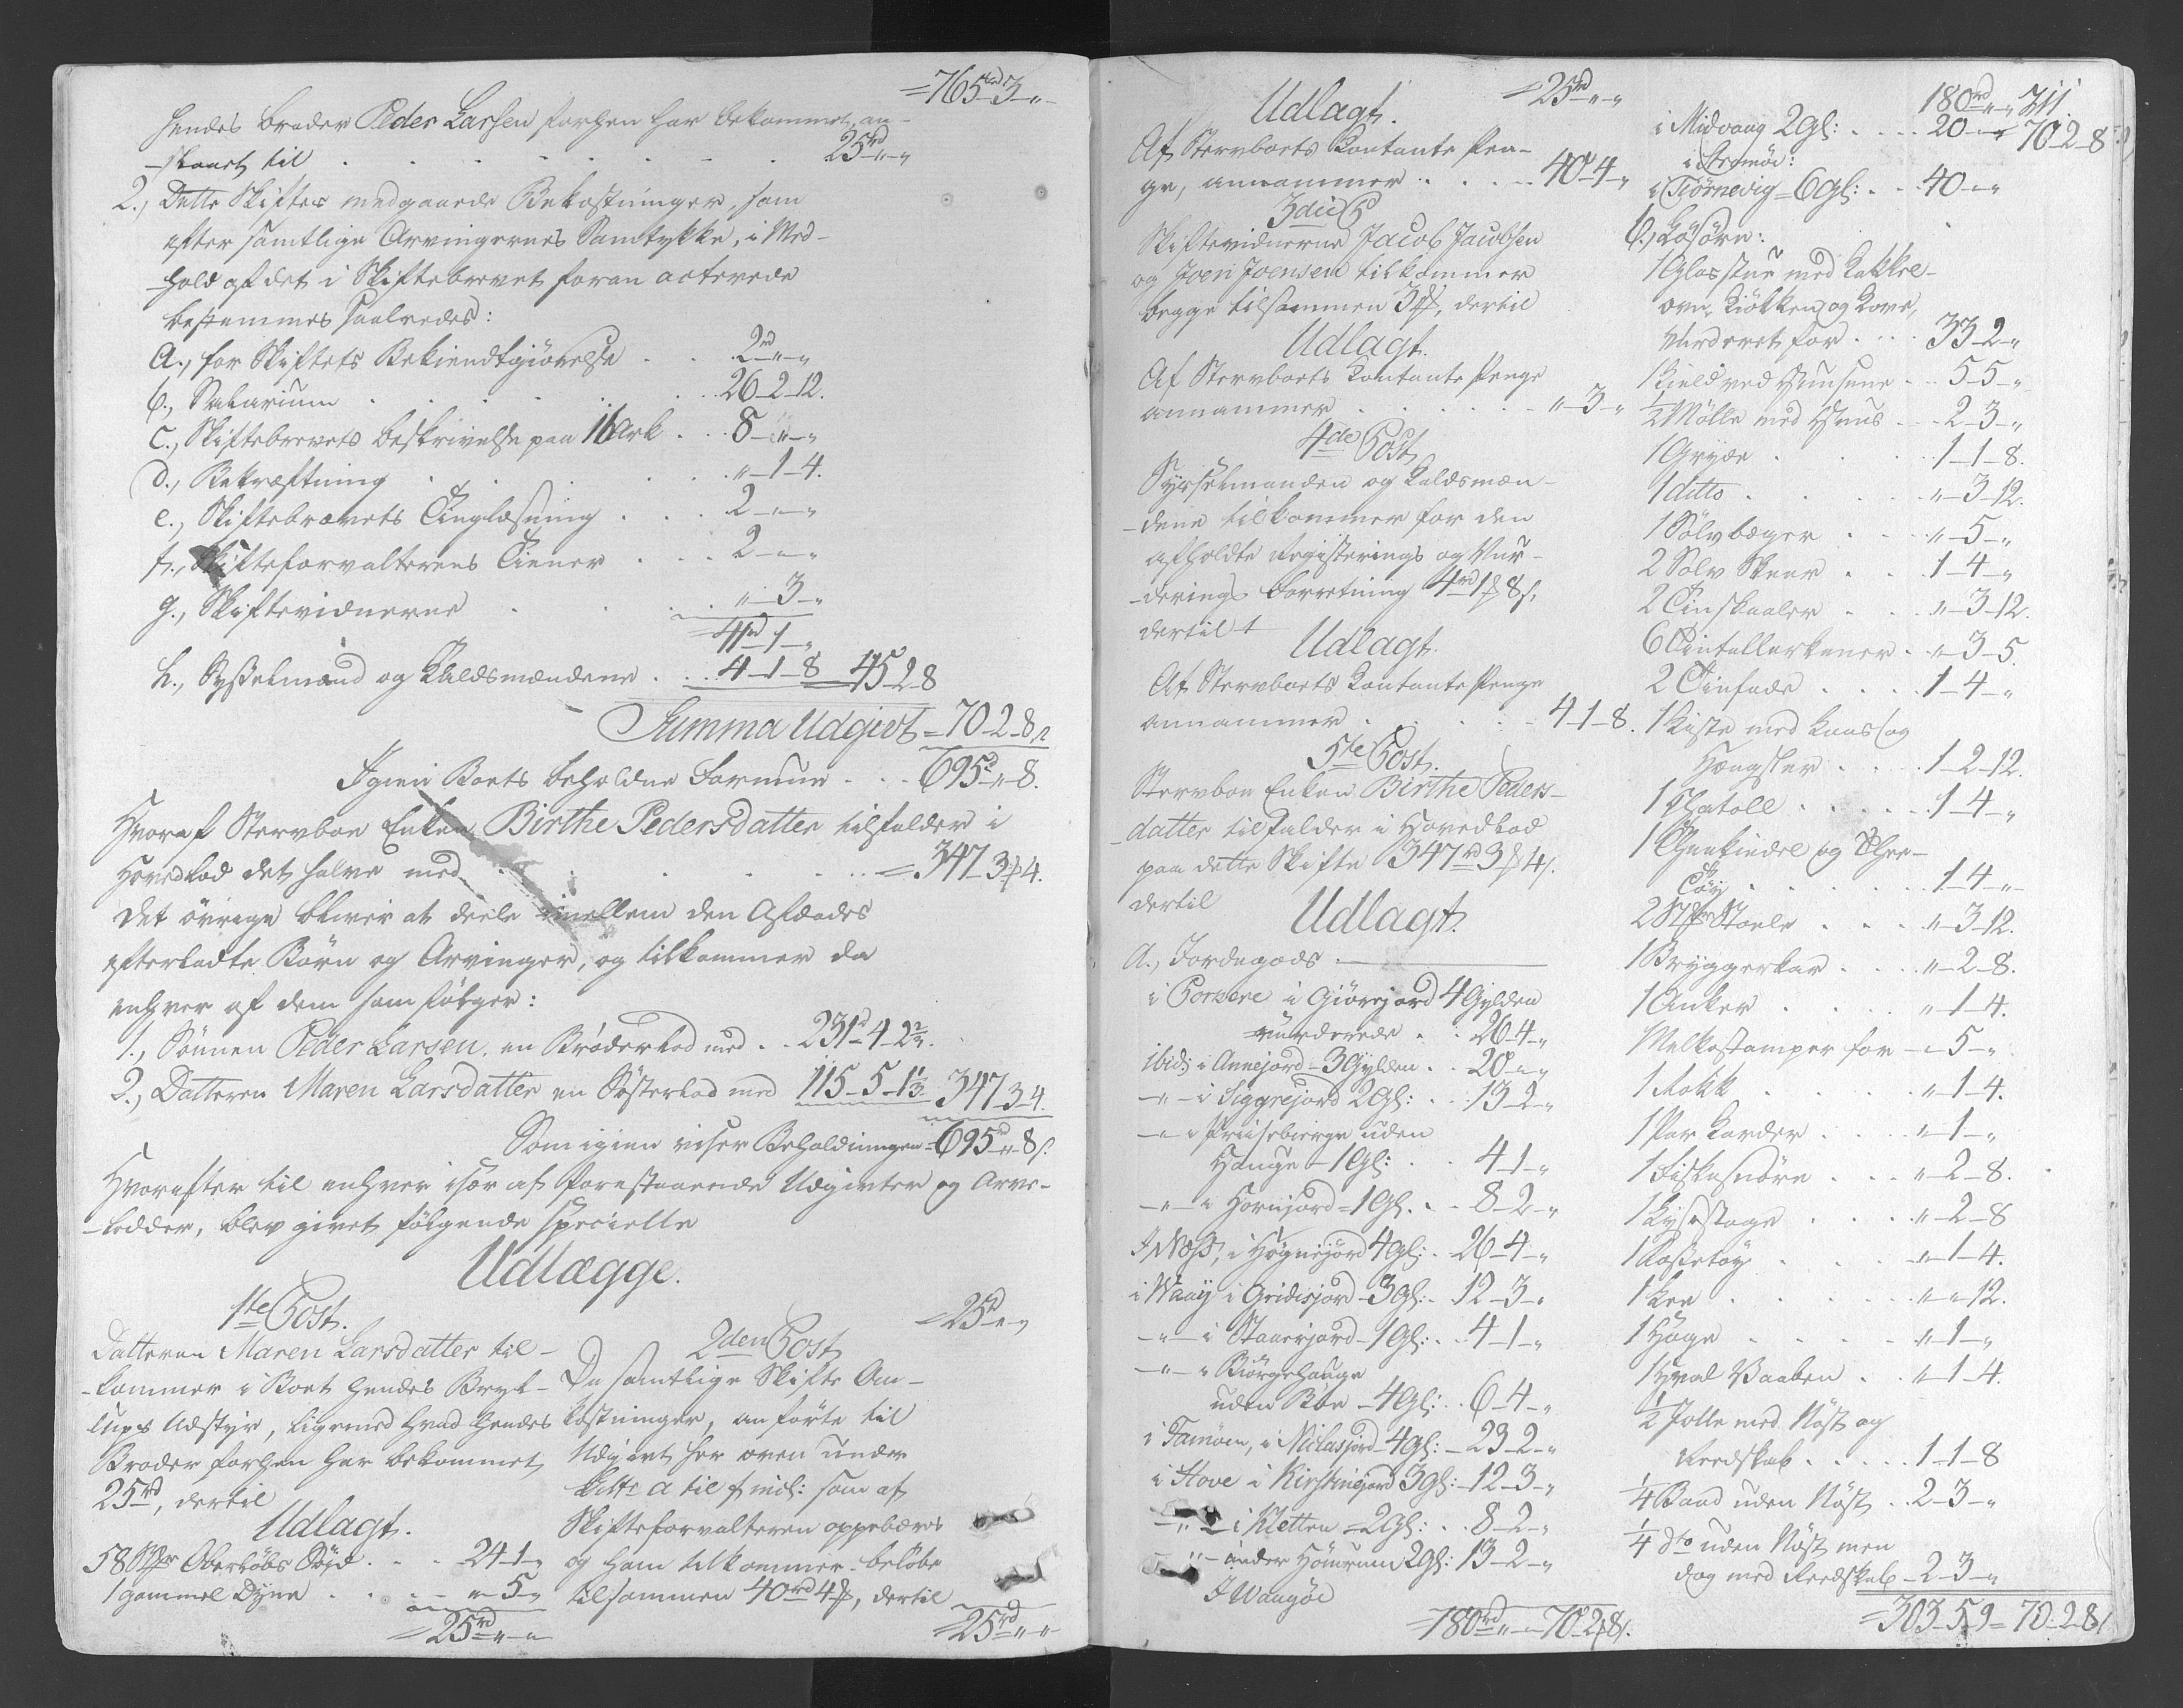 =765rd3-"-
hendes broder Peder Larsen forhen har bekommet, an-
-slaaet til . . . . . . . 25rd-"-"
2., Dette Skiftes medgaaede Bekostninger, som
efter samtlige Arvingernes Samtykke, i Med-
-hold af det i Skiftebrevet foran acterede
bestemmes saaledes:
a., for Skiftets Bekiendtgiørelse . . 2rd-"-"
b., Salarium . . . . . 26-2-12.
c., Skiftebrevets beskrivelse paa 16 Ark . . 8-"-"
d., Bekræftning . . . . "-1-4.
e., Skiftebrevets Tinglæsning . . . 2-"-"
f., Skifteforvalterens Tiener . . . 2-"-"
g., Skiftevidnerne . . . . "-3-"
41rd-1-"
h., Sysselmand og Kaldsmændene . . 4-1-8 45-2-8
Summa Udgivt = 70-2-8
Igien Boets beholdne Formue . . . 695rd-"-8.
Hvoraf Stervboe Enken Birthe Pedersdatter tilfalder i
Hovedlod det halve med . . . . =347-3-4.
Det övrige bliver at deele imellem den Afdødes
efterladte Börn og Arvinger, og tilkommer da
enhver af dem som fölger:
1., Sönnen Peder Larsen, en Broderlod med . . 231rd-4-2 2/3.
2., Datteren Maren Larsdatter en Søsterlod med 115-5-1 1/3 347-3-4.
Som igien viser Beholdningen = 695rd-"-8s.
Hvorefter til enhver især af forestaaende Udgivter og Arve-
-lodder, blev givet fölgende specielle
Udlægge.
1te Post.
Datteren Maren Larsdatter til-
-kommer i Boet hendes Bryl-
lups Udstyr, ligemed hvad hendes
Broder forhen har bekommet,
25rd, dertil
Udlagt.
58 Oberløbs Töjd . . . 24-1-"
1 gammel Dyne . . . "-5-"
=25rd-"-"
=25rd-"-"
2den Post
De samtlige Skifte Om-
kostninger, anförte til
Udgivt her oven under
Litte a til f incl: som af
Skifteforvalteren oppebæres
og ham tilkommer, beløbe
tilsammen 40rd4, dertil
=25rd-"-"
=25rd-"-"
Udlagt.
Af Stervboets Contante Pen-
ge, annammer . . . . 40-4-"
3die P
Skiftevidnerne Jacob Jacobsen
og Joen Joensen tilkommer
begge tilsammen 3, dertil
Udlagt.
Af Stervboets Contante Penge
annammer . . . . . "-3-"
4de Post
Sysselmanden og Kaldsmæn-
-dene tilkommer for den
afholdte Registerings og Vur-
-derings Forretning 4rd1 8s,
dertil
Udlagt.
Af Stervboets Contante Penge
annammer . . . . . 4-1-8.
5te Post.
Stervboe Enken Birthe Peders-
-datter tilfalder i Hovedlod
paa dette Skifte 347rd3 4s.
dertil
Udlagt.
a., Jordegods.
i Porkere i Giörejord 4 Gylden
vurderede . . 26-4-"
ibid: i Annejord-3 Gylden . . 20-"-"
-"- i Siggrejord 2Gl: . . 13-2-"
-"- i uden
Hauge-1Gl: . . 4-1-"
-"- i Hornjord=1Gl. . . 8-2-"
I Næss, i Høgnejord 4Gl: . 26-4-"
i Waag i Gridisjord-3Gl: . 12-3-"
-"- i Staarejord-1Gl: . . 4-1-"
-"- i Biörgehauge
uden Böe-4Gl: . . 6-4-"
i Famöien, i Niclasjord-4Gl: - 23-2-"
i Hove i Kirstinejord 3Gl: - 12-3-"
-"- i Kletten=2Gl: . . 8-2-"
-"- under Hömrum 2Gl: 13-2-"
I Waagöe
=180rd-"-"-70-2 8s.
180rd-"-" 311.
i Midvaag 2Gl: . . . . 20-"-" 70-2-8
i Strømöe:
i Tiørnevig=6Gl: . . 40-"-"
b., Løsöre:
1 Glasstue med Kakkel-
ovn, Kiökken og Kove,
Vurderet for . . . 33-2-"
1 Kield ved Huusene . . 5-5-"
1/2 Mølle med Huus . . 2-3-"
1 Gryde . . . . 1-1-8.
1 ditto . . . . "-3-12.
1 Sölvbæger . . . "-5-"
2 Sølv Skeer . . . 1-4-"
2 Tinskaaler . . . "-3-12.
6 Tintallerkener . "-3-5.
2 Tinfade . . . . 1-4-"
1 Kiste med Laas og
Hængsler . . . 1-2-12.
1 Chatoll . . . . . 1-4-"
1 Theekiedel og Thee-
Tøy . . . . . 1-4-"
2 Stoele . . . "-3-12.
1 Bryggerkar . . . "-2-8.
1 Anker . . . . "-1-4.
Melkestamper for - "-5-"
1 Rokk . . . . . "-1-4.
1 Par Karder . . . "-1-"
1 Fiskesnöre . . . "-2-8.
1 Lysestage . . . "-2-8
1 . . . . "-1-4.
1 Lee . . . . . "-"-12.
1 . . . . . "-1-"
1 Hval Vaaben . . "-1-4.
1/2 Jolle med Nöst og
Reedskab . . . . . 1-1-8
1/4 Baad uden Nöst . . 2-3-"
1/4 dto uden Nöst men
dog med Reedskab - 2-3-"
=303-5-9=70-2-8s